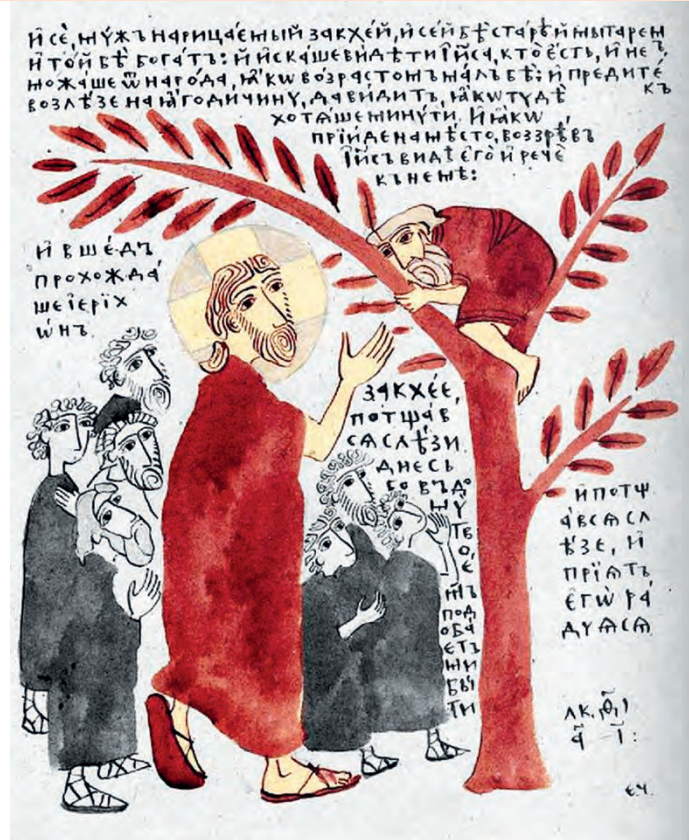 И҆ сѐ, мꙋ́жъ нарица́емый закхе́й, и҆ се́й бѣ̀ старѣ́й мытарем
и҆ то́й бѣ̀ бога́тъ: и҆ и҆ска́ше ви́дѣти і҆и҃са, кто̀ е҆́сть, и҆ не ъ,
можа́ше ѿ наро́да, ꙗ҆́кѡ во́зрастомъ ма́лъ бѣ̀: и҆ предите́
возлѣ́зе на ꙗ҆́годичинꙋ, да ви́дитъ, ꙗ҆́кѡ тꙋдѣ̀ къ
хотѧ́ше минꙋ́ти. И҆ ꙗ҆́кѡ
прїи́де на мѣ́сто, воззрѣ́въ
і҆и҃съ ви́дѣ е҆го̀ и҆ речѐ
къ немꙋ̀:
И҆ вше́дъ
прохожда́
ше і҆ерїх
ѡ́нъ.
закхе́е,
потща́в
сѧ слѣ́зи
днесь
бо въ до
мꙋ
тво
е́
мъ
под
оба
етъ
ми
бы
ти
и҆ потщ
а́всѧ сл
ѣ́зе, и҆
прїѧ́тъ
е҆го̀ ра́
дꙋѧсѧ
лк. ѳ҃і
а҃ – і҃:
е.ч.